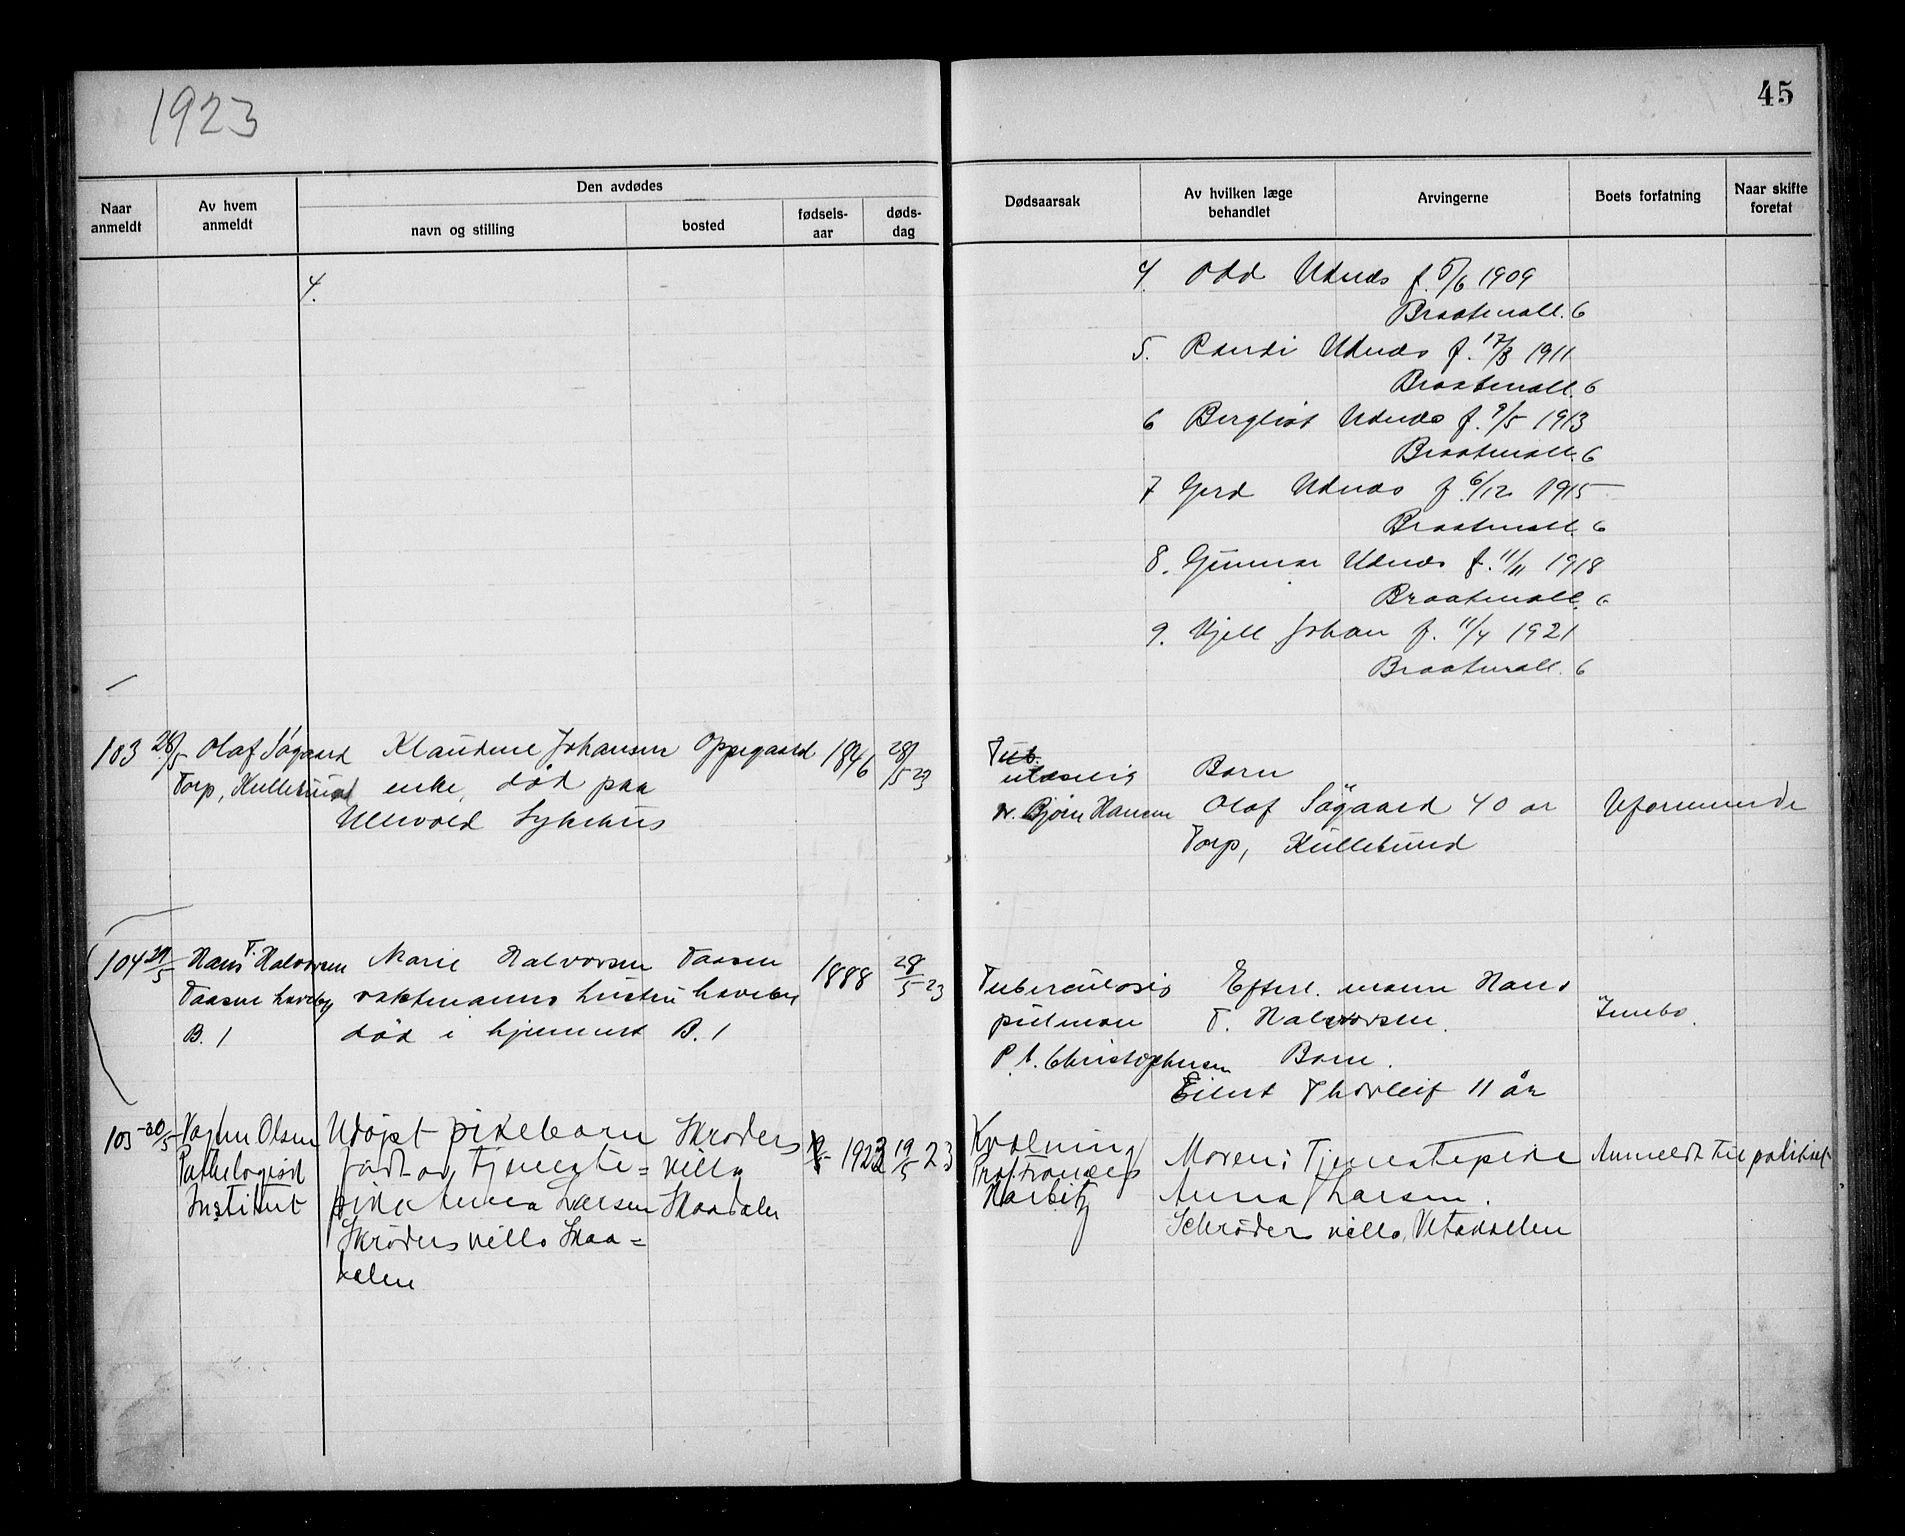 1923
45
Naar anmeldt
Av hvem anmeldt
Den avdødes
navn og stilling
bosted
fødselsaar
dødsdag
Dødsaarsak
Av hvilken læge behandlet
Arvingerne
Boets forfatning
Naar skifte foretat
4.
4. Odd Udnæs f. 5/6 1909
Braatenall. 6
5. Randi Udnæs f. 17/3 1911
Braatenall. 6
6 Bergliot Udnæs f. 9/5 1913
Braatenall. 6
7 Gerd Udnæs f. 6/12 1915
Braatenall. 6
8. Gunnar Udnæs f. 11/11 1918
Braatenall. 6
9. Kjell Johan f. 11/4 1921
Braatenall. 6
103 28/5 Olaf Søgaard Klaudine Johansen Oppegaard 1846 28/5 23
Torp, Kullebund enke, død paa
Ullevold Sykehus
Tub.
ulæselig Barn
Dr. Bjørn Hansen Olaf Søgaard 40 år Uformuende
Torp, Kullebund
104 29/5 Hans T. Halvorsen Marie Halvorsen Taasen 1888 28/5 23
Taasen haveby vaktmanns hustru haveby
B. 1 død i hjemmet B. 1
Tuberculosis Efterl. mann Hans
pulmon T. Halvorsen. Innbo.
P. A. Christophersen Barn.
Eilert Thorleif 11 år
105 30/5 Olsen Udøpt pikebarn Skrøders 1923 19/5 23
Pathologisk født av tjeneste= villa
Institut pike Anna Larsen Skaadalen
Skrøders villa Skaa=
dalen
Kvælning Moren: Tjenestepike Anmeldt til politiet
Harbitz Anna Larsen.
Schrøders villa,